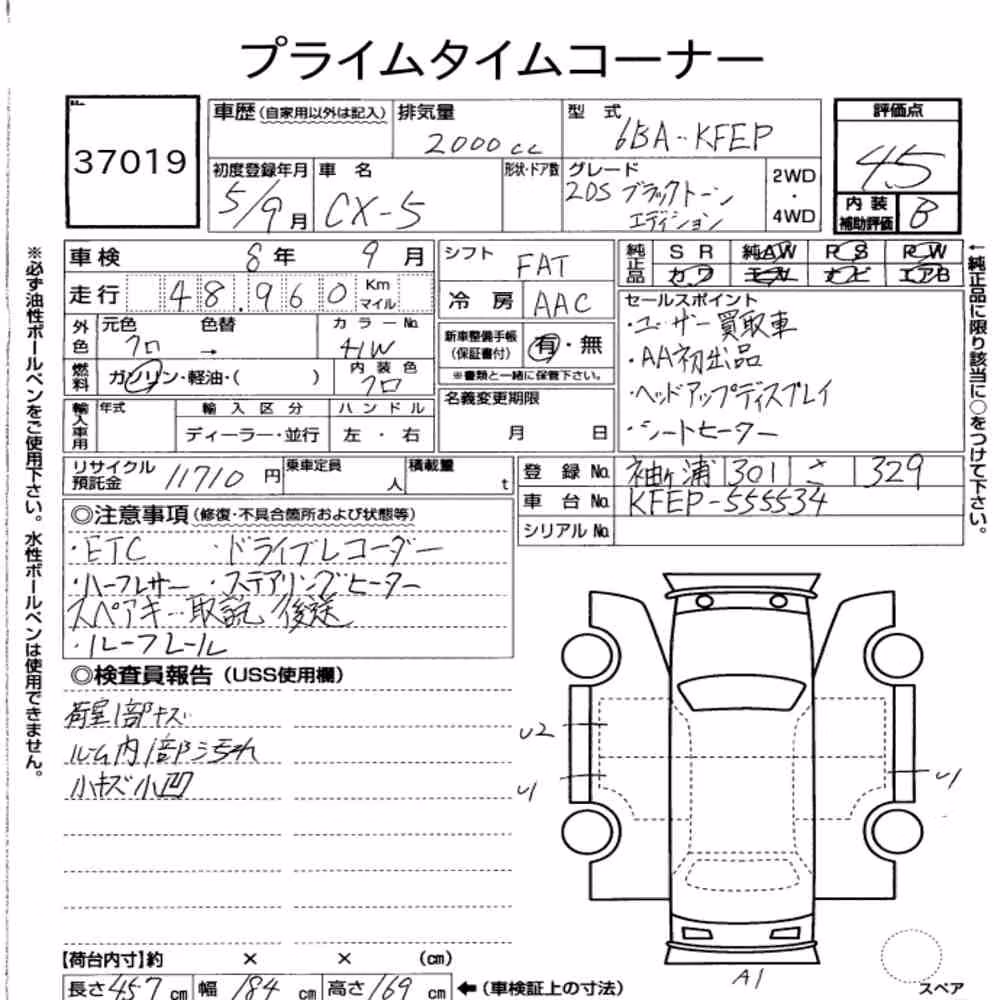 プライムタイムコーナー
37019
車歴 (自家用以外は記入) 排気量 2000cc 型式 6BA-KFEP
評価点 4.5
内装補助評価 B
初度登録年月 5/9月 車名 CX-5 形状・ドア数 グレード 20S ブラックトーンエディション 2WD・4WD
車検 8年 9月
シフト FAT
純正品 SR 純AW PS PW
カワ ナビ エアB
走行 48.960 Km マイル
冷房 AAC
セールスポイント
・ユーザー買取車
・AA初出品
・ヘッドアップディスプレイ
・シートヒーター
外色 元色 クロ 色替 → カラーNo. 41W
新車整備手帳(保証書付) 有・無
※書類と一緒に保管下さい。
燃料 ガソリン・軽油・( ) 内装色 クロ
名義変更期限 月 日
輸入車用 年式 輸入区分 ハンドル
ディーラー・並行 左・右
リサイクル預託金 11710円 乗車定員 人 積載量 t
登録No. 袖ヶ浦 301 さ 329
車台No. KFEP-555534
シリアルNo.
◎注意事項(修復・不具合箇所および状態等)
・ETC ・ドライブレコーダー
・ハーフレザー ・ステアリングヒーター
スペアキー 取説 後送
・ルーフレール
◎検査員報告(USS使用欄)
荷室1部キズ
ルーム内1部汚れ
小キズ小凹
U2
U1
U1
A1
スペア
【荷台内寸】約 × × (cm)
長さ457cm 幅184cm 高さ169cm ←(車検証上の寸法)
※必ず油性ボールペンをご使用下さい。水性ボールペンは使用できません。
←純正品に限り該当に○をつけて下さい。